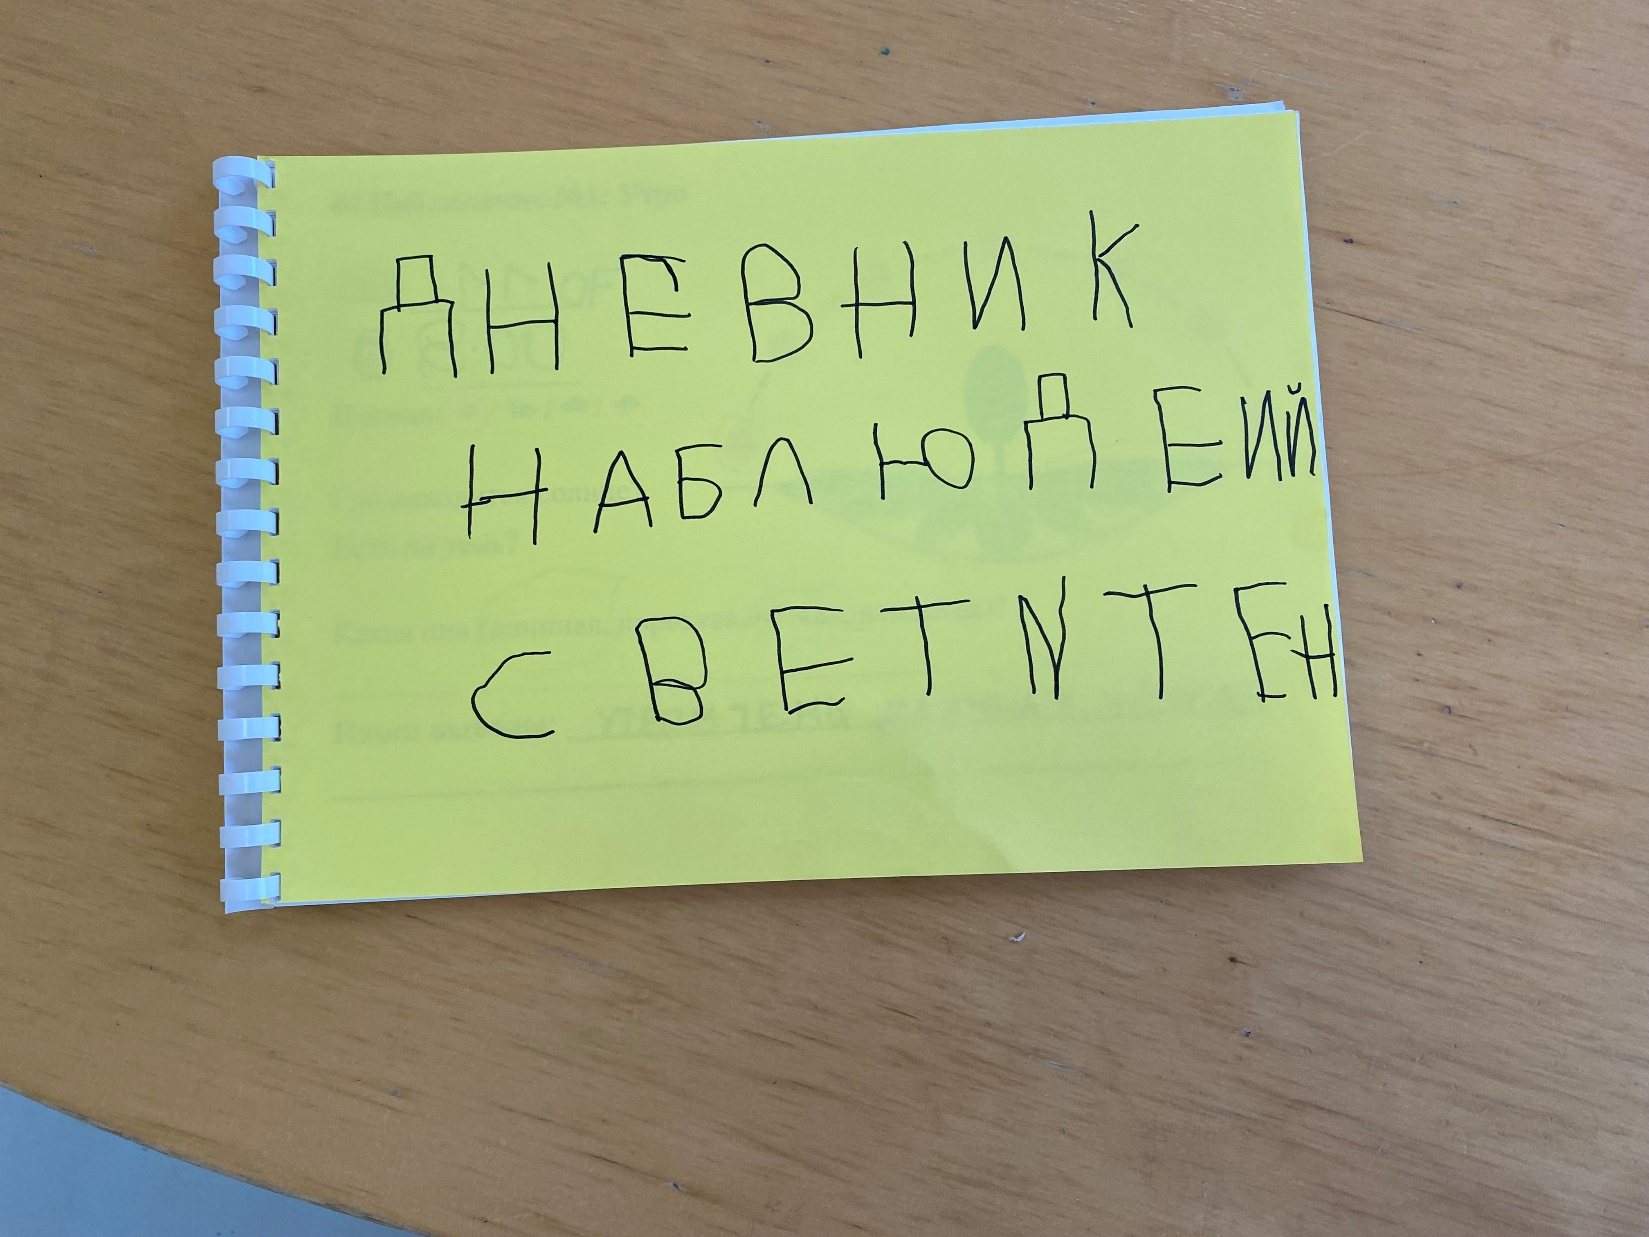 ДНЕВНИК
НАБЛЮДЕИЙ
СВЕТ И ТЕН